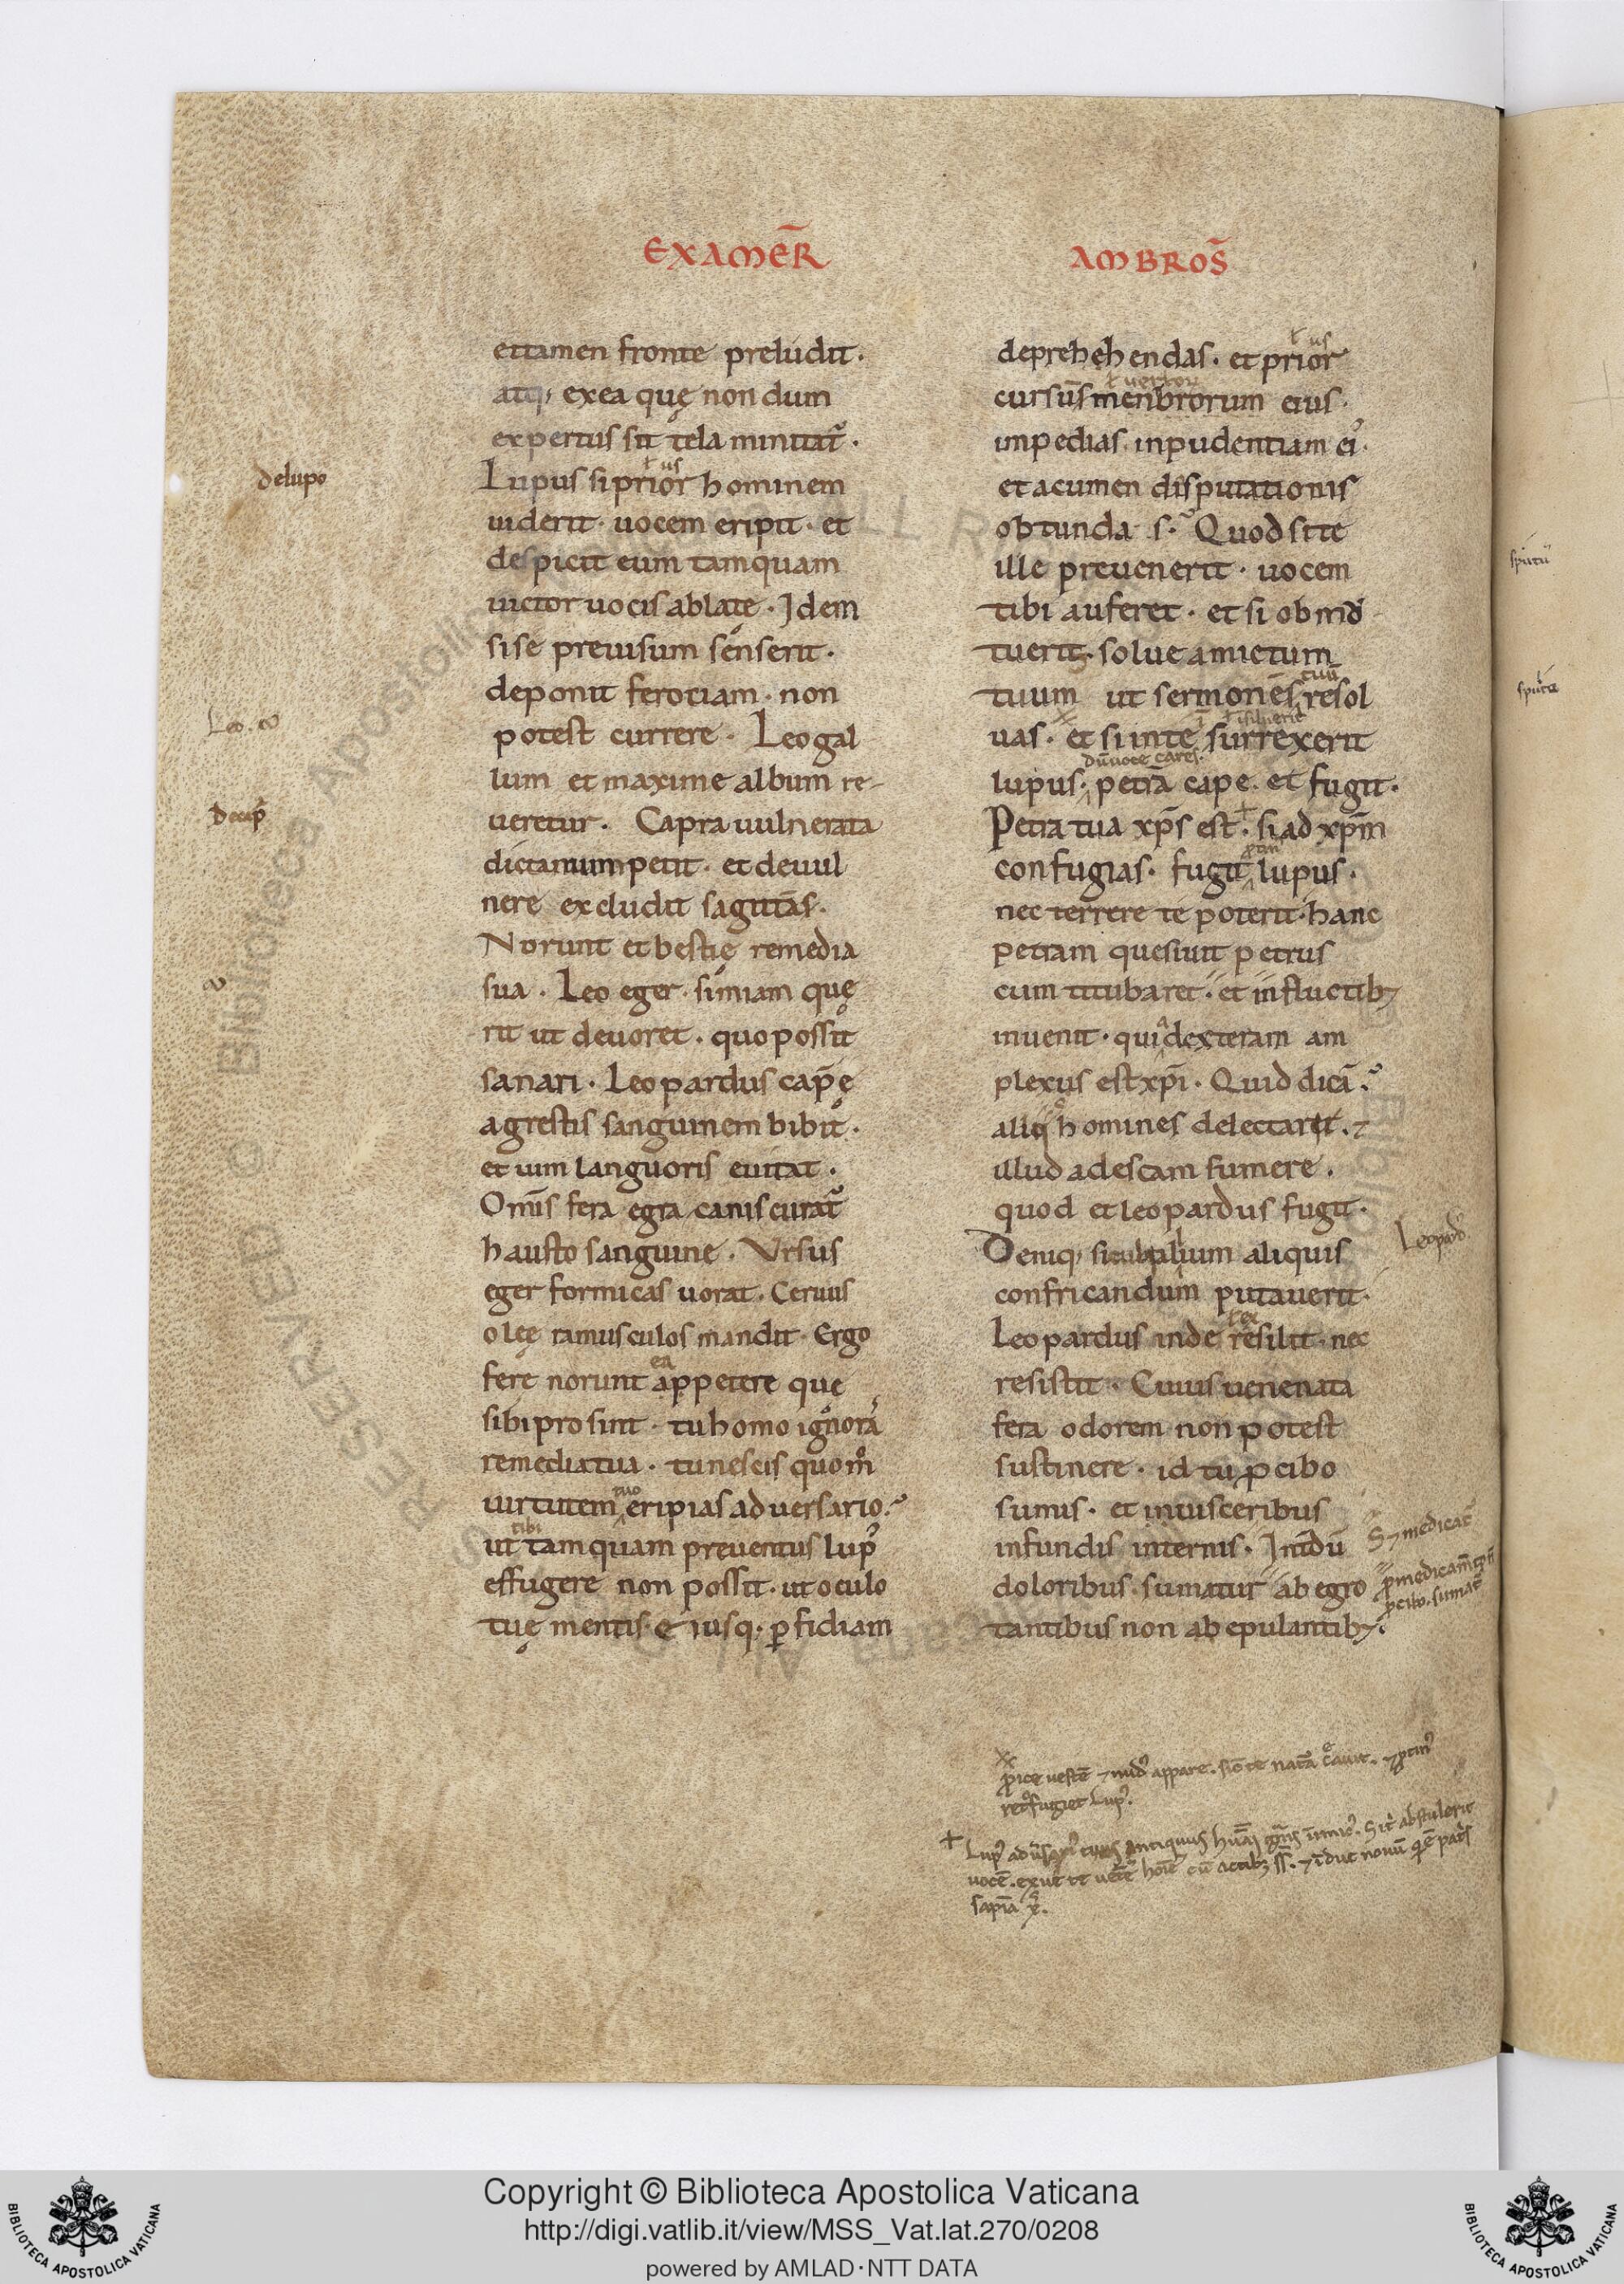 EXAMER̄
ettamen fronte preludit·
atq; exea quę non dum
expertus sit tela minitat᷑·
Lupus siprior hominem
ł us
uiderit· uocem eripit· et
despicit eum tamquam
uictor uocis ablatę· Idem
sise preuisum senserit·
deponit ferociam· non
potest currere· Leo gal
lum et maxime album re-
ueretur· Capra uulnerata
dictanium petit· et deuul
nere excludit sagittas·
Norunt et bestię remedia
sua· Leo eger· simiam quę
rit ut deuoret· quo possit
sanari· Leopardus cap̄ę
agrestis sanguinem bibit·
et uim languoris euitat·
Om̄is fera egra canis curat᷑
hausto sanguine· Vrsus
eger formicas uorat· Ceruus
olęę ramusculos mandit· Ergo
ferę norunt appetere que
ea
sibi prosint· tu homo ignorā
remedia tua· tu nescis quom̊
uirtutem eripias aduersario·
tuo
ut tamquam preuentus lup᾽
tibi
effugere non possit· ut oculo
tuę mentis· eiusq· ꝑfidiam
AMBROS̄
deprehehendas· et prior
ł us
cursūs menbrorum eius·
inpedias· inpudentiam ei᾽·
et acumen disputationis
obtunda s· Quod si te
ille preuenerit· uocem
tibi auferet· et si obmu
tuerit· solue amictum
tuum ut sermonēs resol
tuū
uas· et si in te surrexerit
lupus· petrā cape· et fugit·
dū uoce cares·
Petra tua xp̄s est· si ad xp̄m
confugias· fugit lupus·
nec terrere te poterit· hanc
petram quesiuit petrus
cum titubaret· et in fluctib;
inuenit· qui dexteram am
a
plexus est xp̄i· Quid dicā·
homines delectaret·
illud ad escam sumere·
quod et leopardus fugit·
Deniq; sicubi alium aliquis
confricandum putauerit·
Leopardus inde resilit· nec
ł ex
resistit· Cuius uenenata
fera odorem non potest
sustinere· id tu ꝓ cibo
sumis· et in uisceribus
infundis internis·
doloribus· sumatur ab egro
tantibus non ab epulantib;·
delupo
Leo·
Decap̄
Leopard᾽
S; medicat᷑
ꝓ cibo· sumat᷑
ꝓice uestē ⁊ nud᾽ appare·
fugiet lup᾽·
+ Lup᾽ antiquus
uocē· exue te
sapīa
spūtū
spūta
Copyright © Biblioteca Apostolica Vaticana
http://digi.vatlib.it/view/MSS_Vat.lat.270/0208
powered by AMLAD·NTT DATA
BIBLIOTECA APOSTOLICA VATICANA
BIBLIOTECA APOSTOLICA VATICANA